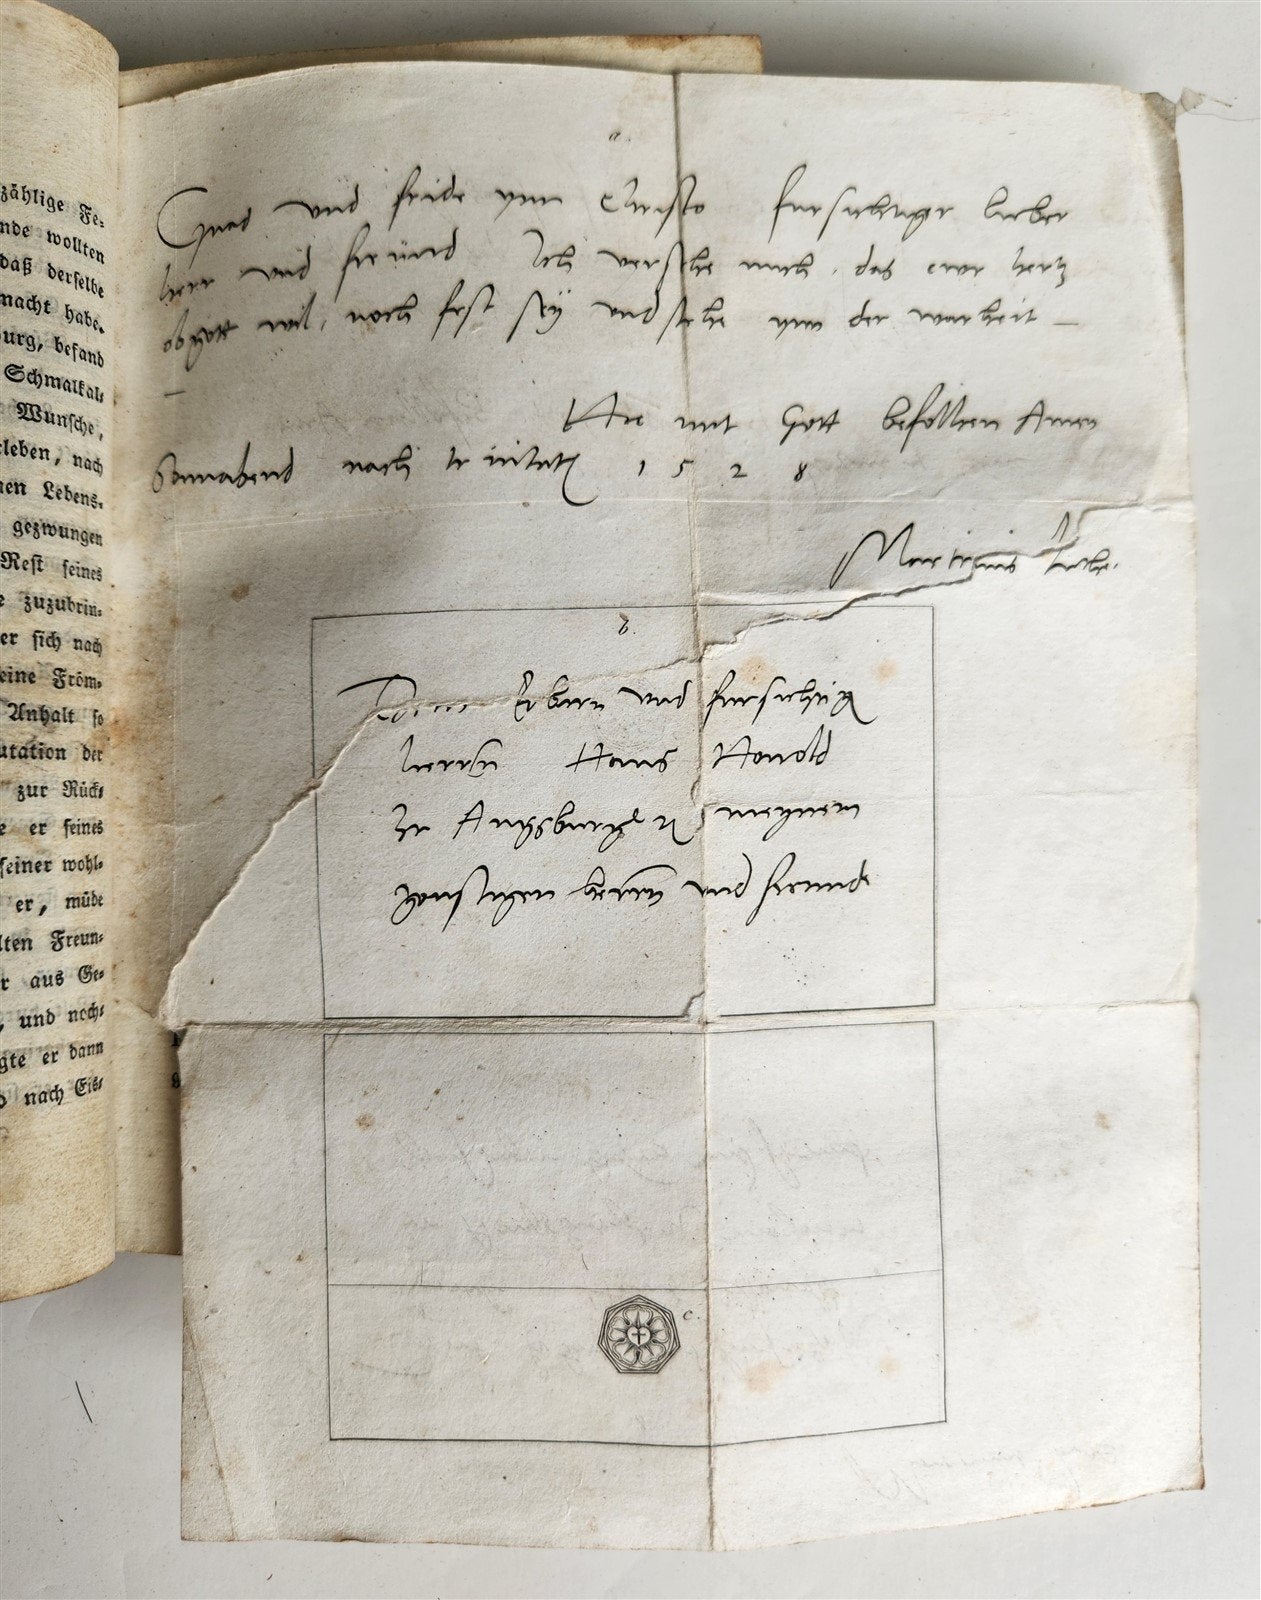 zählige Fe-
nde wollten
daß derselbe
macht habe.
urg, befand
Schmalkal-
Wunsche,
leben, nach
nen Lebens-
gezwungen
Rest seines
e zuzubrin-
er sich nach
eine Fröm-
Anhalt so
utation der
zur Rück-
e er seines
seiner wohl-
er, müde
lten Freun-
r aus Ge-
, und noch-
gte er dann
nach Eis-
a.
Gnad vnd fride ynn Christo fursichtiger lieber
herr vnd freund Ich versehe mich, das ewr hertz
ob gott wil, noch fest sey vnd stehe ynn der warheit —
—
Hie mit Gott befolhen Amen
Sonnabend nach trinitatis 1528
Martinus Luther.
b.
Dem Erbarn vnd fursichtigen
herrn Hans Honold
zu Augsburg meynem
gonstigen herrn vnd freunde
c.